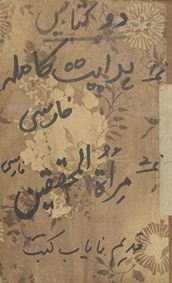 دو کتابیں
نمبر ۱ ہدایت کاملہ
فارسی
نمبر ۲ مرأة المحققین فارسی
قدیم نایاب کتب